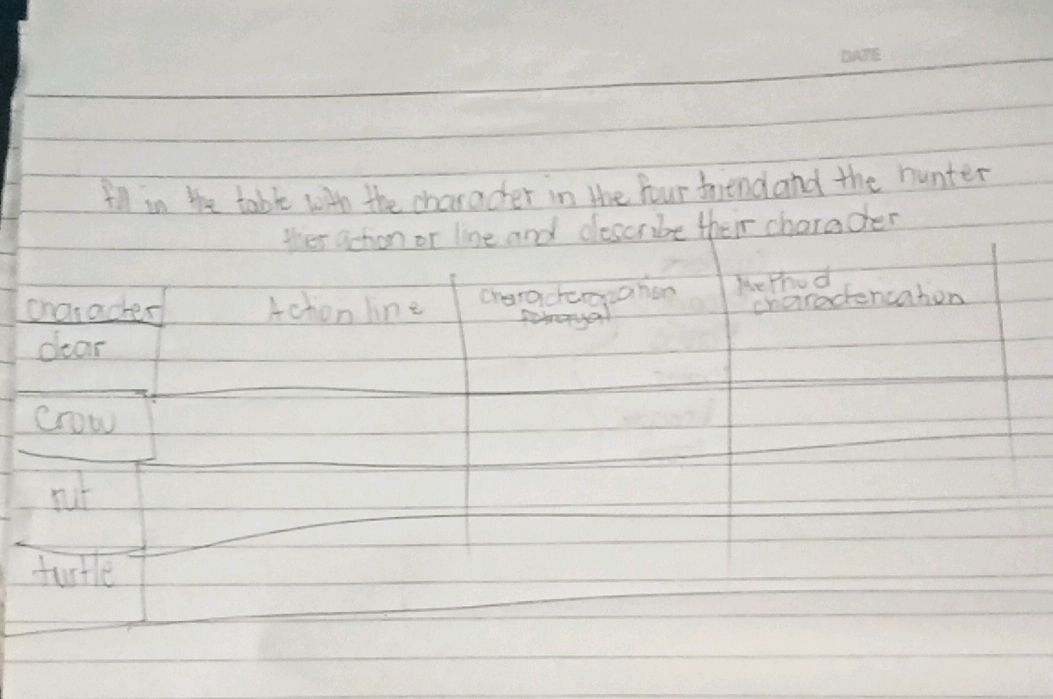 DATE
fill in the table with the character in the four friend and the hunter
ther action or line and describe their character
character Action line characterization Method
portrayal characterication
dear
crow
rut
turtle